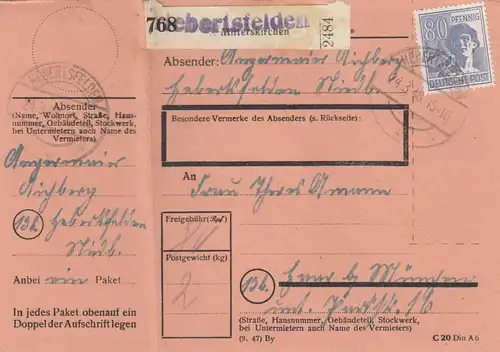 768
Hebertsfelden
Mitterskirchen
2484
80
PFENNIG
DEUTSCHE POST
HEBERTSFELDEN
Absender
(Name, Wohnort, Straße, Haus-
nummer, Gebäudeteil, Stockwerk,
bei Untermietern auch Name des
Vermieters)
Angermaier
Aichberg
13b Hebertsfelden
Ndb.
Anbei ein Paket
In jedes Paket obenauf ein
Doppel der Aufschrift legen
Absender: Angermaier Aichberg
Hebertsfelden Ndb.
Besondere Vermerke des Absenders (s. Rückseite):
An
Frau Theres
Freigebühr (Rpf)
80
Postgewicht (kg)
2
13b Haar b. München
16
(Straße, Hausnummer, Gebäudeteil, Stockwerk,
bei Untermietern auch Name des Vermieters)
(9. 47) By
C 20 Din A 6